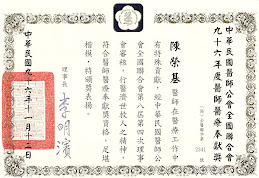 中華民國醫師公會全國聯合會
九十六年度醫師醫療奉獻獎
陳榮基 醫師在醫療工作中
有特殊貢獻，經中華民國醫師公
會全國聯合會第八屆第四次理事
會審核，行醫濟世救人之精神，
符合醫師醫療奉獻獎資格，足堪
楷模，特頒獎表揚。
理事長 李明濱
中華民國九十六年十一月十二日